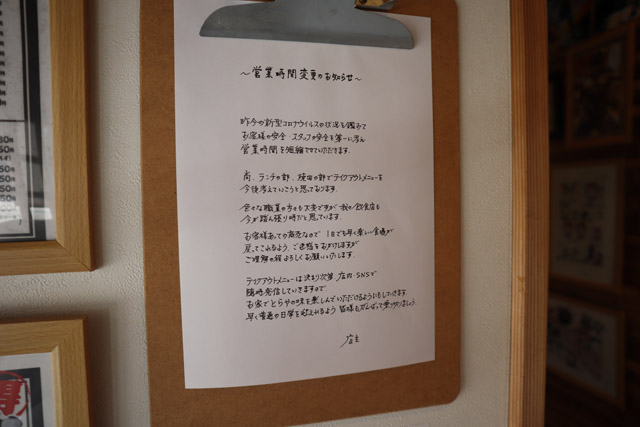 ～営業時間変更のお知らせ～
昨今の新型コロナウイルスの状況を鑑みて
お客様の安全・スタッフの安全を第一に考え
営業時間を短縮させていただきます。
尚、ランチの部、夜の部でテイクアウトメニューを
今後考えていこうと思っております。
色々な職業の方々も大変ですが 我々飲食店も
今が踏ん張り時だと思っています。
お客様あっての商売なので 1日でも早く楽しい食事が
戻ってこれるよう、ご迷惑をおかけしますが
ご理解の程よろしくお願いいたします。
テイクアウトメニューは決まり次第、店内・SNSで
随時発信していきますので
お家でとらやの味を楽しんでいただけるようにもしていきます。
早く普通の日常を迎えれるよう 皆様もがんばって乗りきりましょう。
店主